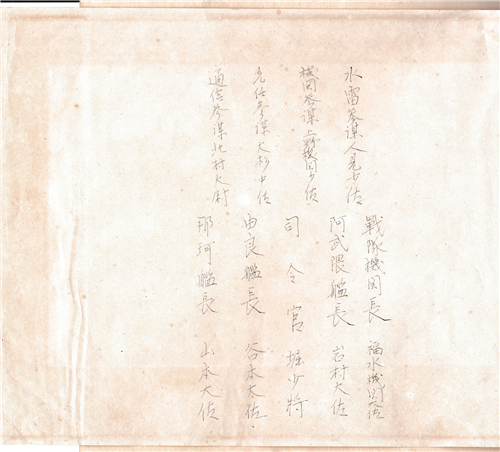 水雷参謀人見少佐
機関参謀上野機関少佐
先任参謀大杉中佐
通信参謀北村大尉
戦隊機関長 福水機関大佐
阿武隈艦長 岩村大佐
司令官 堀少将
由良艦長 谷本大佐.
那珂艦長 山本大佐